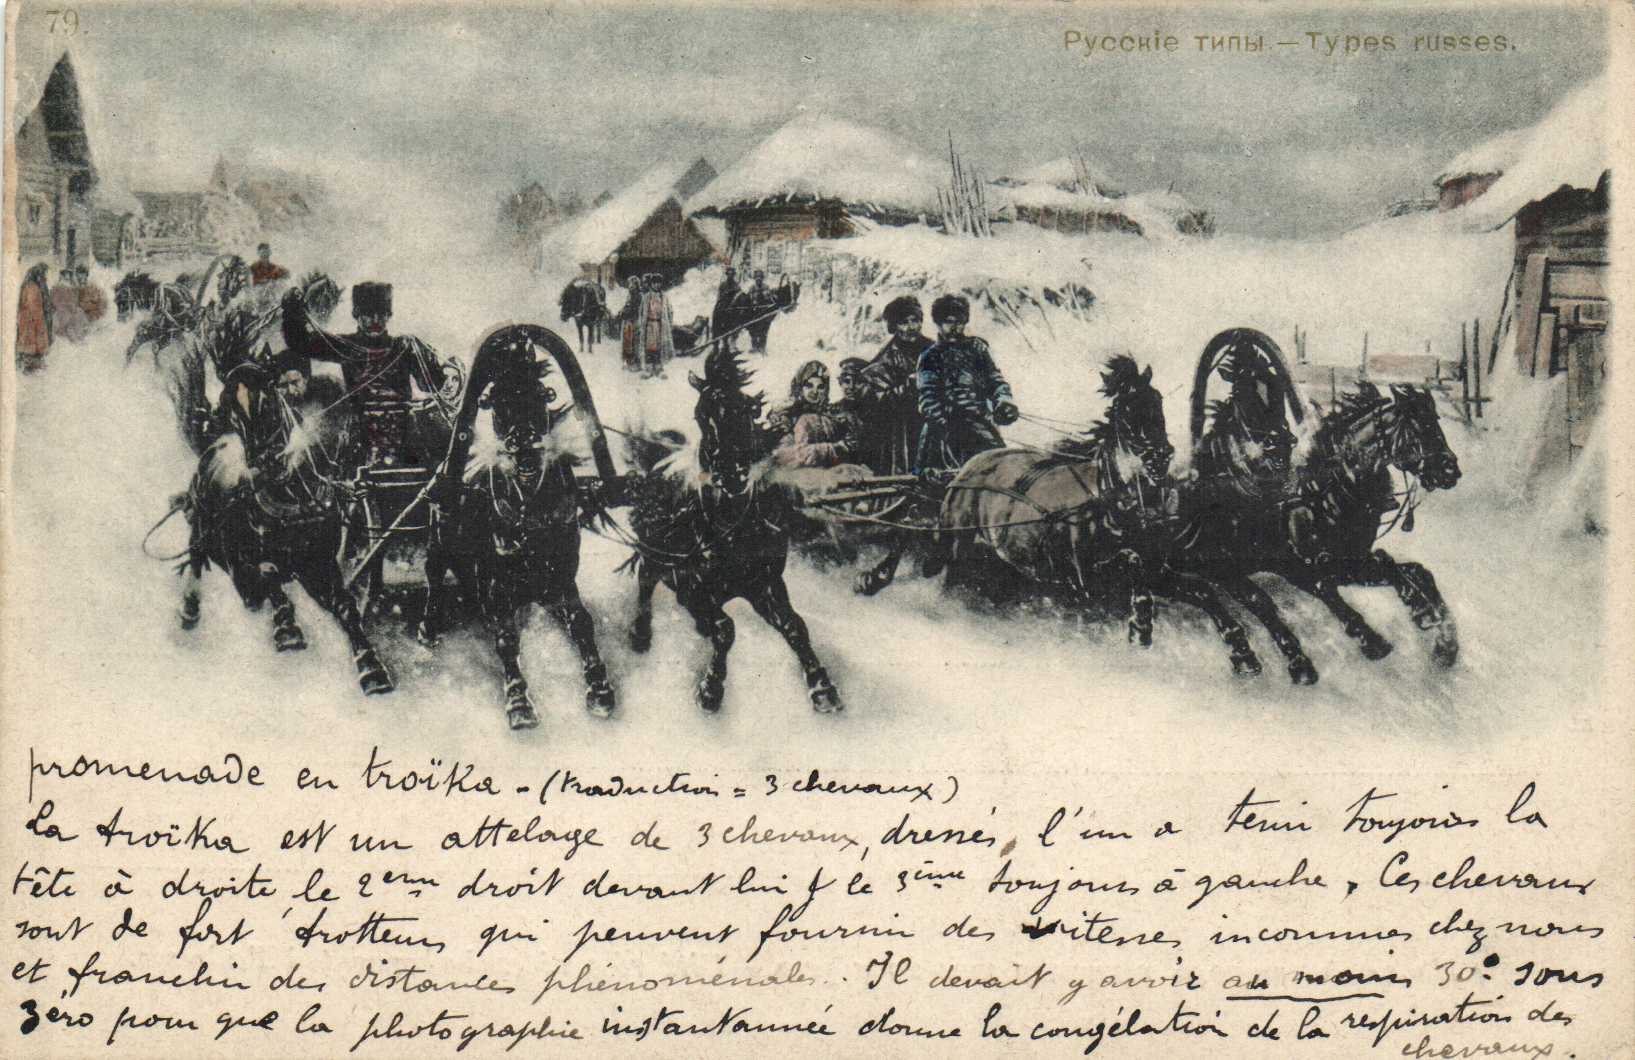 79.
Русскіе типы. — Types russes.
promenade en troïka - (traduction = 3 chevaux)
La troïka est un attelage de 3 chevaux, dressés, l'un a tenir toujours la
tête à droite, le 2ème droit devant lui & le 3ème toujours à gauche. Ces chevaux
sont de fort trotteurs qui peuvent fournir des vitesses inconnues chez nous
et franchir des distances phénoménales. Il devait y avoir au moins 30° sous
zéro pour que la photographie instantannée donne la congélation de la respiration des
chevaux.